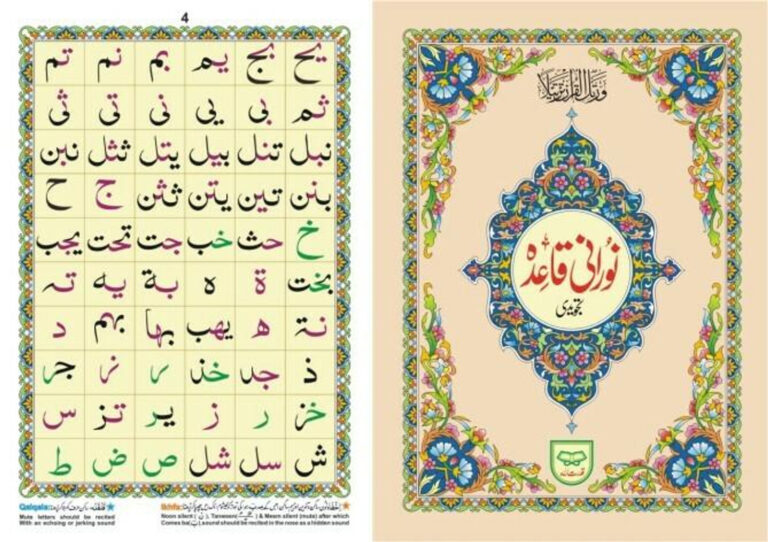 4
یح بج یم بم نم تم
ثم بی یی نی تی ثی
نبل تنل بیل یتل ثثل نبن
بنن تین یتن ثثن ج ح
خ حث خب جت تحت یجب
بخت ة ه بة یه تہ
نة ھ یھب بها بهم د
ذ جد خذ ر نر جر
خز ر ز یر تز س
ش سل شل ص ض ط
Qalqala:
Mute letters should be recited
With an echoing or jerking sound
Ikhfa:
Noon silent ( ن ), Tanween( ) & Meem silent (mute) after which
Comes ba(ب), sound should be recited in the nose as a hidden sound
وَرَتِّلِ الْقُرْاٰنَ تَرْتِيْلًا
نُورانی قاعِدہ
تجویدی